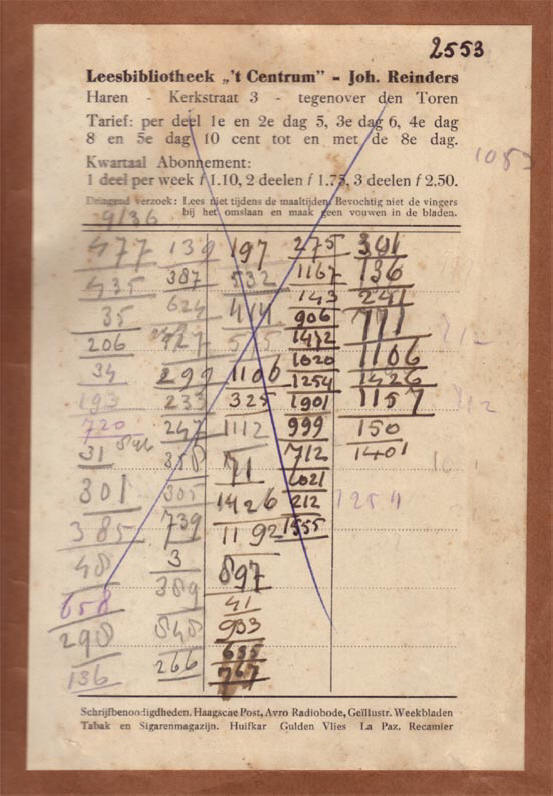 2553
Leesbibliotheek „'t Centrum” - Joh. Reinders
Haren - Kerkstraat 3 - tegenover den Toren
Tarief: per deel 1e en 2e dag 5, 3e dag 6, 4e dag
8 en 5e dag 10 cent tot en met de 8e dag.
Kwartaal Abonnement:
1 deel per week f 1.10, 2 deelen f 1.75, 3 deelen f 2.50.
Dringend verzoek: Lees niet tijdens de maaltijden. Bevochtig niet de vingers
bij het omslaan en maak geen vouwen in de bladen.
9/36
477 139 197 275 301
435 387 532 1167 136
35 624 414 143 241
206 427 515 906 771
34 299 1106 1472 1106
193 233 325 1020 1426
720 247 1112 1254 1157
31 358 71 1901 150
301 305 1426 999 1401
385 739 1192 712
48 3 897 1021
658 389 41 212
298 848 933 1555
136 266 635
767
1254
Schrijfbenoodigdheden. Haagsche Post, Avro Radiobode, Geïllustr. Weekbladen
Tabak en Sigarenmagazijn. Huifkar Gulden Vlies La Paz. Recamier